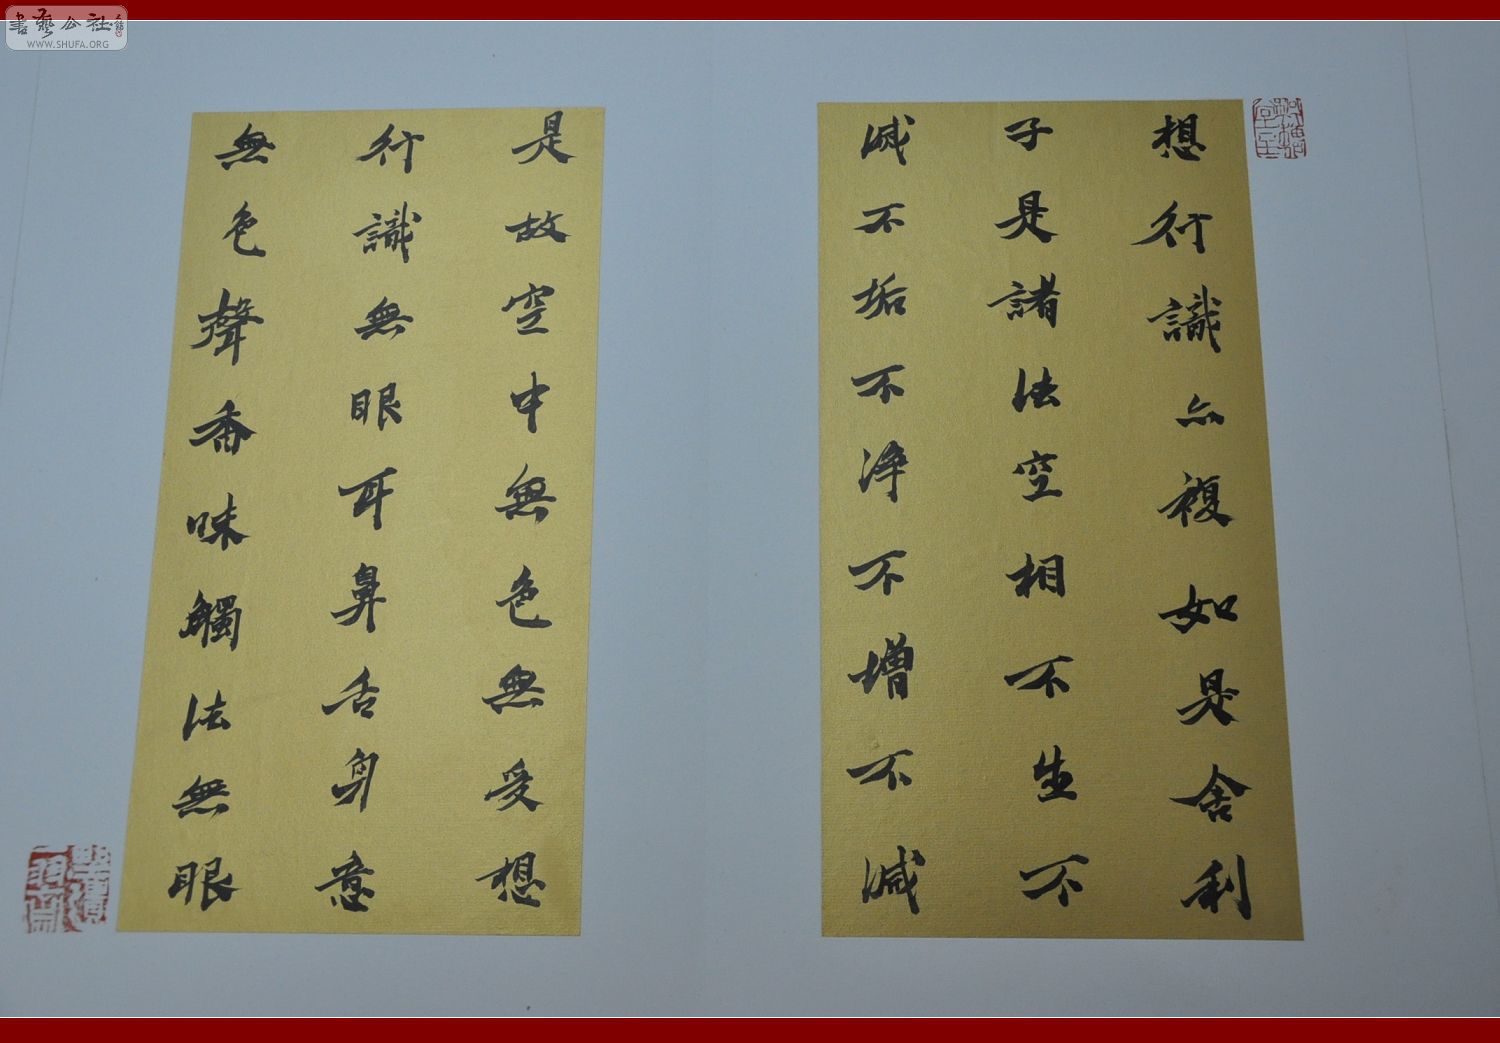 想行識亦複如是舍利
子是諸法空相不生不
滅不垢不净不增不減
是故空中無色無受想
行識無眼耳鼻舌身意
無色聲香味觸法無眼
書藝公社
WWW.SHUFA.ORG